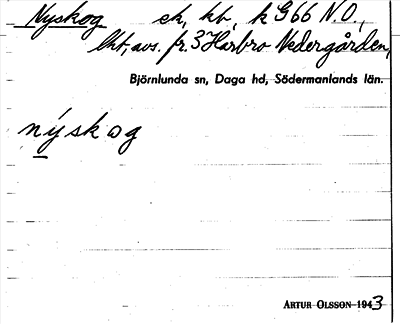 Nyskog ek, kb, k G66 N.O.,
lht, avs. fr. 3 Harbro Nedergården,
Björnlunda sn, Daga hd, Södermanlands län.
nýskog
ARTUR OLSSON 1943